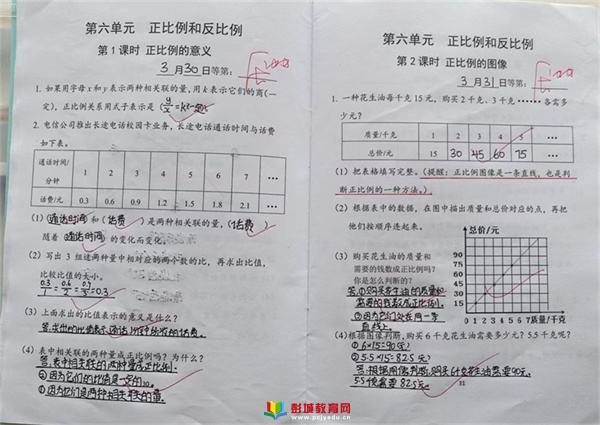 第六单元 正比例和反比例
第1课时 正比例的意义
3月30日等第：
1. 如果用字母x和y表示两种相关联的量，用k表示它们的商（一
定），正比例关系用式子表示是（
2. 电信公司推出长途电话校园卡业务，长途电话通话时间与话费
如下表。
通话时间/分钟 1 2 3 4 5 6 7 …
话费/元 0.3 0.6 0.9 1.2 1.5 1.8 2.1 …
(1)（通话时间）和（话费）是两种相关联的量，（话费）
随着（通话时间）的变化而变化。
(2) 写出3组这两种量中相对应的两个数的比，再求出比值，
比较比值的大小。
0.3/1=0.6/2=0.9/3=0.3
(3) 上面求出的比值表示的意义是什么？
答:求出的比值表示通话1分钟所需的话费.
(4) 表中相关联的两种量成正比例吗？为什么？
答:表中相关联的两种量成正比例.
①因为它们的比值是一定的.
②因为它们是两种相关联的量.
第六单元 正比例和反比例
第2课时 正比例的图像
3月31日等第：
1. 一种花生油每千克15元，购买2千克、3千克……各需多
少元？
质量/千克 1 2 3 4 5 …
总价/元 15 30 45 60 75 …
(1) 把表格填写完整。（提醒：正比例图像是一条直线，也是判
断正比例的一种方法。）
(2) 根据表中的数据，在图中描出质量和总价对应的点，再把
他们按顺序连起来。
总价/元
90
75
60
45
30
15
0 1 2 3 4 5 6 7 质量/千克
(3) 购买花生油的质量和
需要的钱数成正比例吗？
你是怎么判断的？
答:①购买花生油的质量和
需要的钱数成正比例.
②因为它们处在同一条
直线上.
(4) 根据图像判断，购买6千克花生油需要多少元？5.5千克呢？
①6×15=90(元)
②5.5×15=82.5(元)
答:根据图像判断,购买6千克花生油需要90元,
5.5千克需要82.5元.
彭城教育网
www.pcjyedu.cn